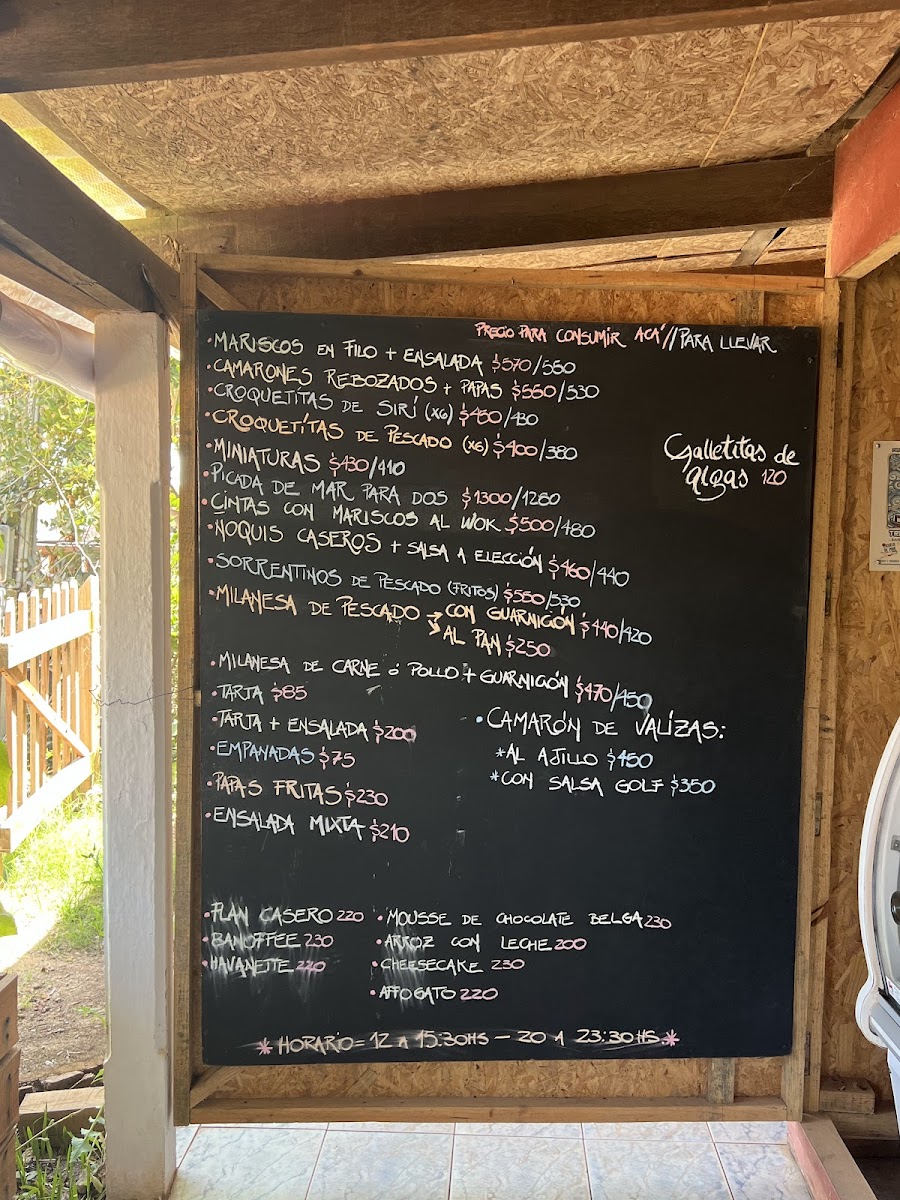 PRECIO PARA CONSUMIR ACÁ//PARA LLEVAR
•MARISCOS EN FILO + ENSALADA $570/550
•CAMARONES REBOZADOS + PAPAS $550/530
•CROQUETITAS DE SIRÍ (x6) $450/430
•CROQUETITAS DE PESCADO (x6) $400/380
•MINIATURAS $430/410
•PICADA DE MAR PARA DOS $1300/1280
•CINTAS CON MARISCOS AL WOK $500/480
•ÑOQUIS CASEROS + SALSA A ELECCIÓN $460/440
•SORRENTINOS DE PESCADO (FRITOS) $550/530
•MILANESA DE PESCADO → CON GUARNICIÓN $440/420
→ AL PAN $250
Galletitas de
algas 120
•MILANESA DE CARNE Ó POLLO + GUARNICIÓN $470/450
•TARTA $85
•TARTA + ENSALADA $200
•EMPANADAS $75
•PAPAS FRITAS $230
•ENSALADA MIXTA $210
•CAMARÓN DE VALIZAS:
*AL AJILLO $450
*CON SALSA GOLF $350
•FLAN CASERO 220
•BANOFFEE 230
•HAVANETTE 220
•MOUSSE DE CHOCOLATE BELGA 230
•ARROZ CON LECHE 200
•CHEESECAKE 230
•AFFOGATO 220
*HORARIO= 12 A 15:30HS – 20 A 23:30HS.*